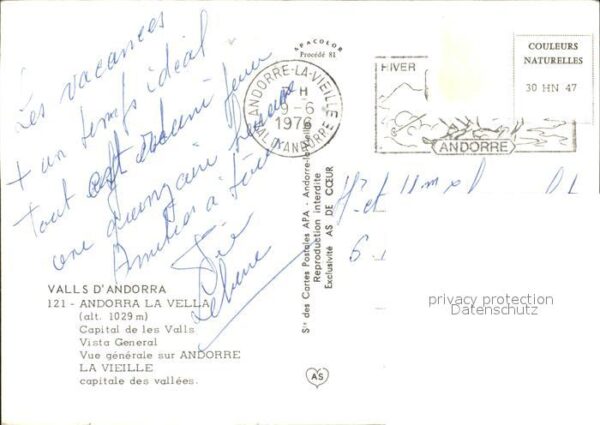 Les vacances
+ un temps idéal
Tout est réuni pour
une quinzaine heureuse
Amitiés à tous
APACOLOR
Procédé 81
ANDORRE-LA-VIEILLE
H
9-6
1976
VAL D'ANDORRE
HIVER
ANDORRE
COULEURS
NATURELLES
30 HN 47
VALLS D'ANDORRA
121 - ANDORRA LA VELLA
(alt. 1029 m)
Capital de les Valls
Vista General
Vue générale sur ANDORRE
LA VIEILLE
capitale des vallées.
Sté des Cartes Postales APA - Andorre-la-Vieille
Reproduction interdite
Exclusivité AS DE CŒUR
AS
privacy protection
Datenschutz